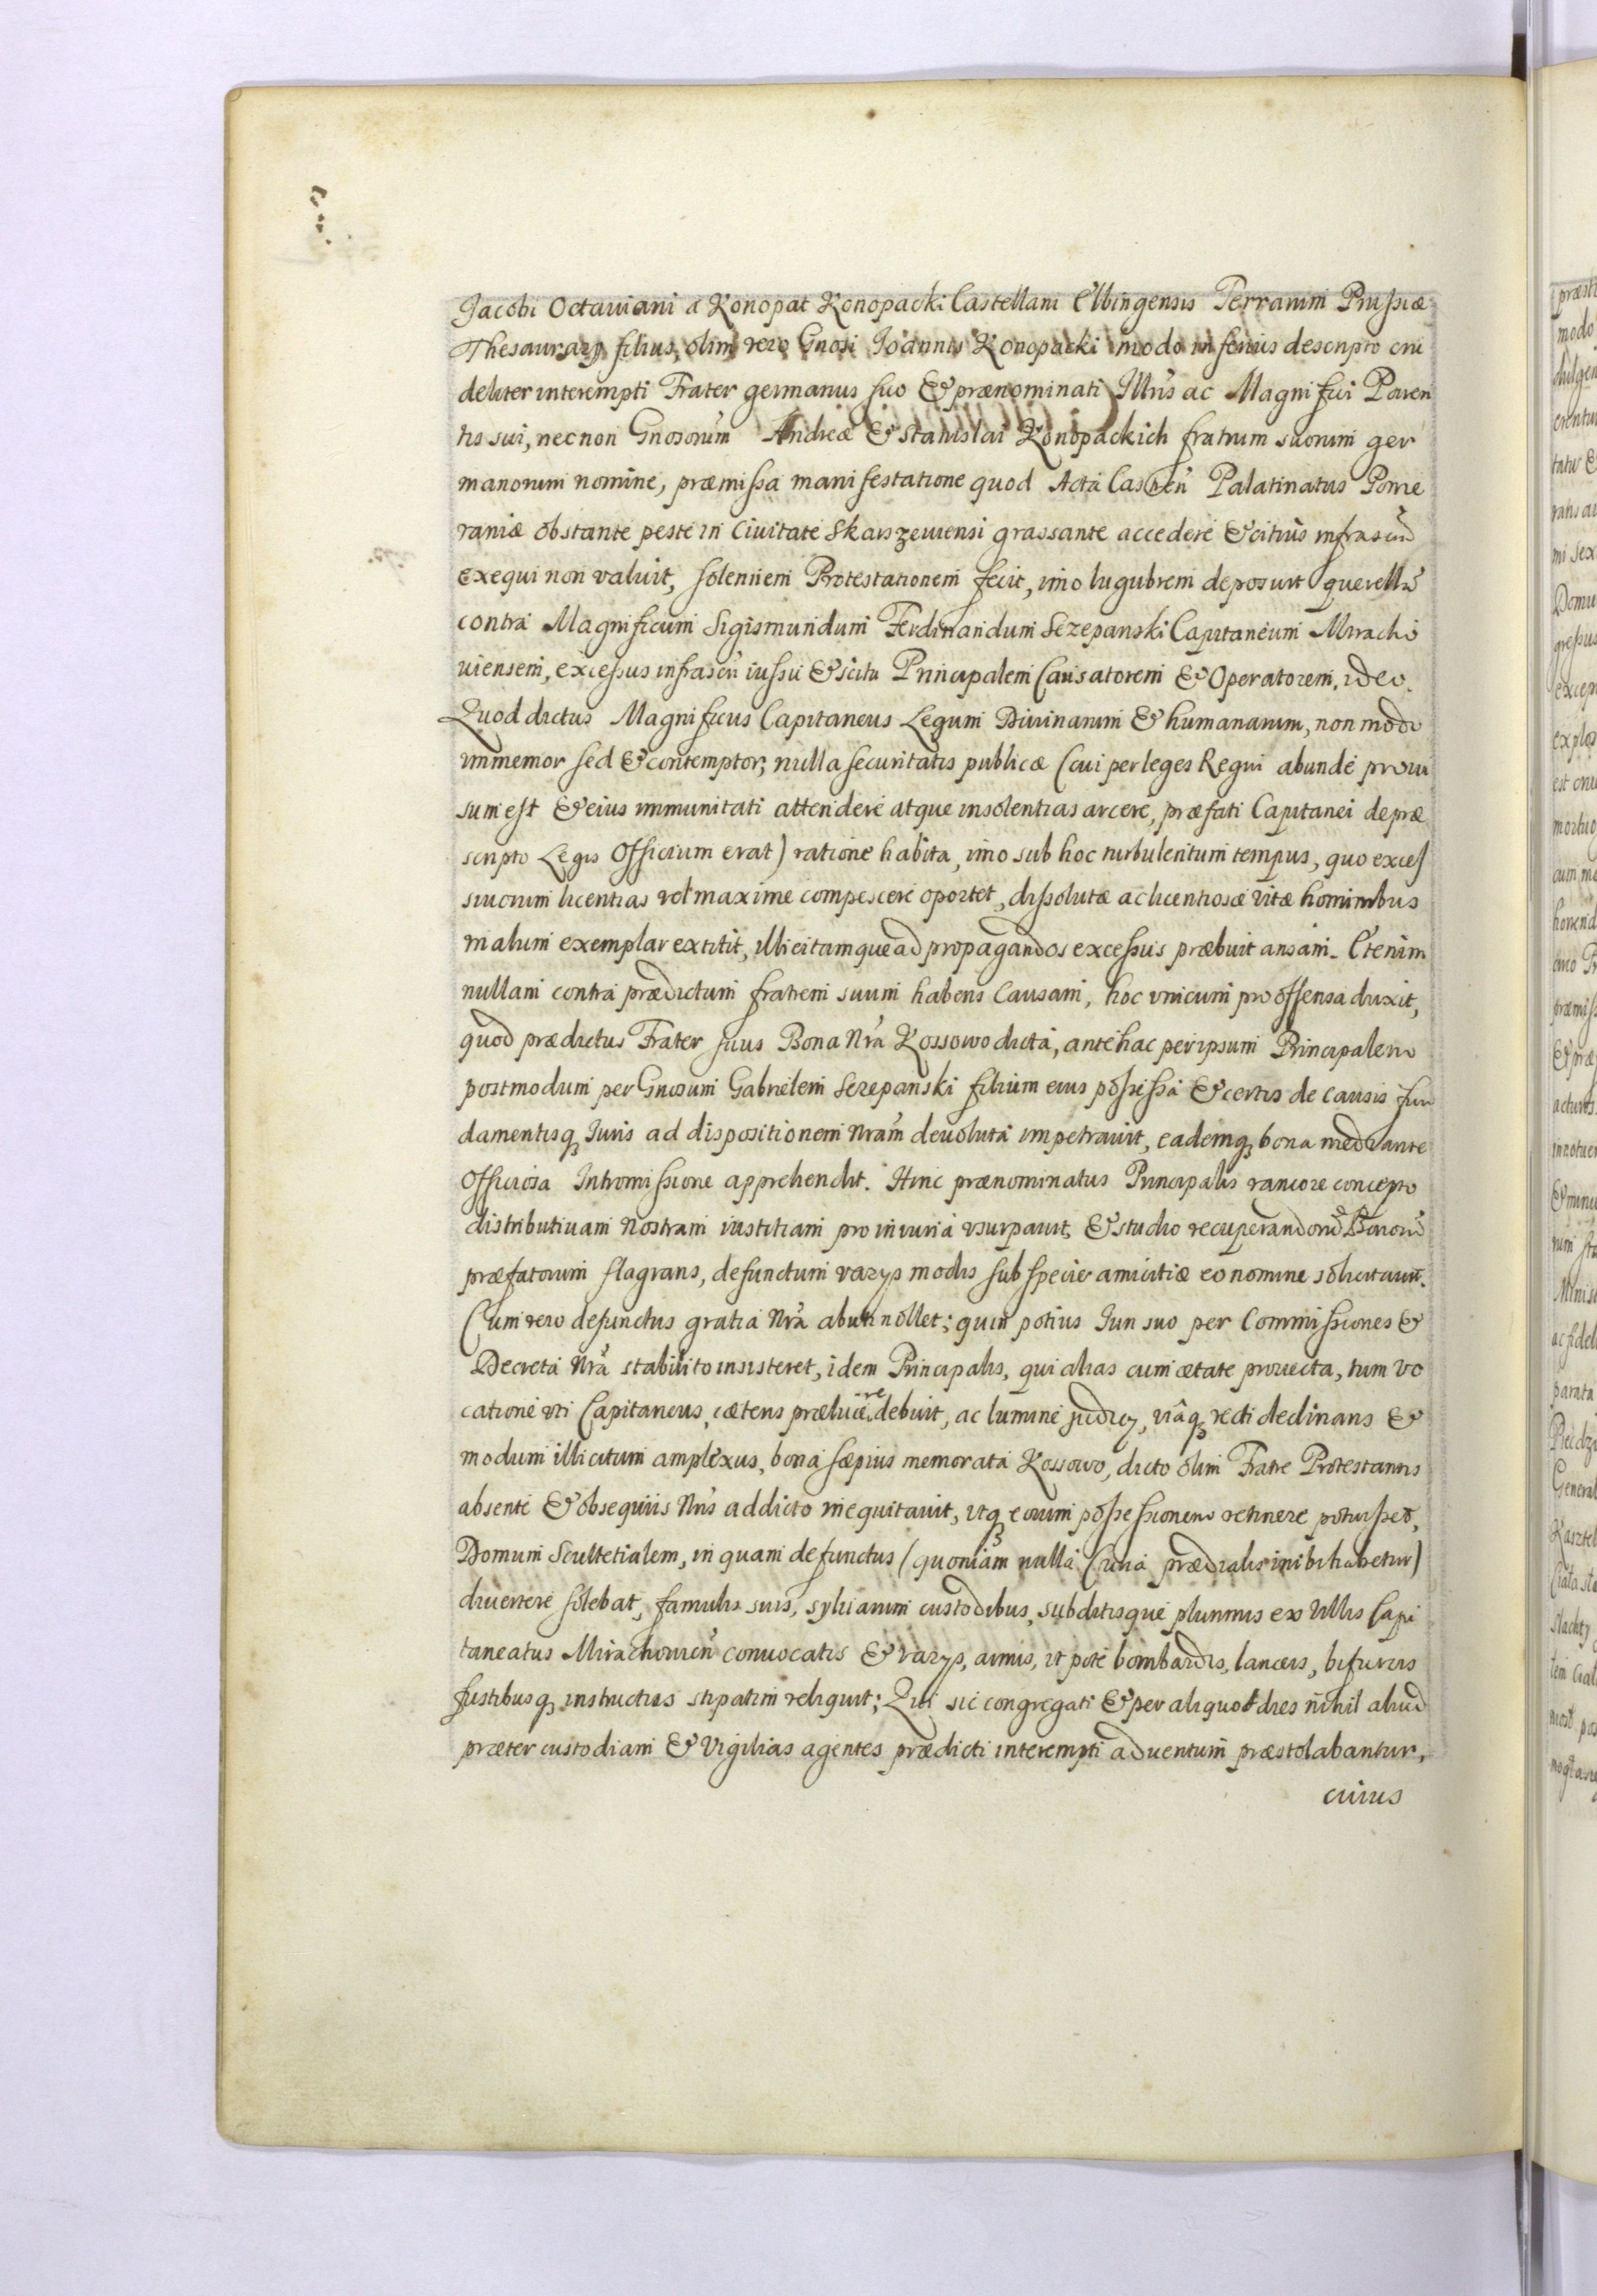 Jacobi Octauiani a Konopat Konopacki Castellani Elbingensis Terrarum Prussiæ
Thesaurarij filius, olim vero Gnosi Joannis Konopacki modo inferius descripto cru
deliter interempti Frater germanus suo & prænominati Illris ac Magnifici Paren
tis sui, necnon Gnosorum Andreæ & Stanislai Konopackich fratrum suorum ger
manorum nomine, præmissa manifestatione quod Acta Castren Palatinatus Pome
raniæ obstante peste in Ciuitate Skarszeuiensi grassante accedere & citius infrascrip
exequi non valuit, solennem Protestationem fecit, imo lugubrem deposuit querellã
contra Magnificum Sigismundum Ferdinandum Sczepanski Capitaneum Miracho
uiensem, excessus infrascri iussu & scitu Principalem Causatorem & Operatorem, ideo.
Quod dictus Magnificus Capitaneus Legum Diuinarum & humanarum, non modo
immemor sed & contemptor, nulla securitatis publicæ (cui per leges Regni abunde proui
sum est & eius immunitati attendere atque insolentias arcere, præfati Capitanei de præ
scripto Legis Officium erat) ratione habita, imo sub hoc turbulentum tempus, quo exces
siuorum licentias vel maxime compescere oportet, dissolutæ ac licentiosæ vitæ hominibus
malum exemplar extitit, illicitamque ad propagandos excessus præbuit ansam. Etenim
nullam contra prædictum fratrem suum habens Causam, hoc vnicum pro offensa duxit,
quod prædictus Frater suus Bona Nra Kossowo dicta, antehac per ipsum Principalem
postmodum per Gnosum Gabrielem Sczepanski filium eius possessa & certis de causis fun
damentisq Iuris ad dispositionem Nram deuoluta impetrauit, eademq bona mediante
Officiosa Intromissione apprehendit. Hinc prænominatus Principalis rancore concepto
distributiuam Nostram iustitiam pro iniuria vsurpauit, & studio recuperandorũ Bonorũ
præfatorum flagrans, defunctum varijs modis sub specie amicitiæ eo nomine solicitauit.
Cum vero defunctus gratia Nra abuti nollet; quin potius Iuri suo per Commissiones &
Decreta Nra stabilito insisteret, idem Principalis, qui alias cum ætate prouecta, tum vo
catione vti Capitaneus, cæteris prælucere debuit, ac lumine iudicij, viâq recti declinans &
modum illicitum amplexus, bona sæpius memorata Kossowo, dicto olim Fratre Protestantis
absente & obsequiis Nris addicto inequitauit, vtq eorum possessionem retinere potuisset,
Domum Scultetialem, in quam defunctus (quoniam nulla Curia prædialis inibi habetur)
diuertere solebat, famulis suis, syluarum custodibus, subditisque plurimis ex Villis Capi
taneatus Mirachouien conuocatis & varijs, armis, vt pote bombardis, lanceis, bifurcis
fustibusq instructis stipatim reliquit; Qui sic congregati & per aliquot dies nihil aliud
præter custodiam & Vigilias agentes prædicti interempti aduentum præstolabantur,
cuius